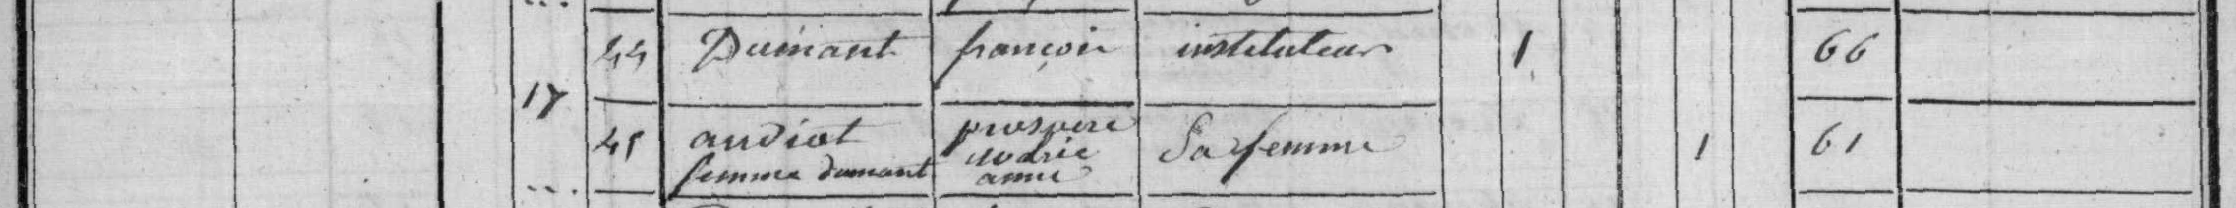 44 Dumant françois instituteur 1 66
17
45 audiot prospere Sa femme 1 61
femme dumant
anne